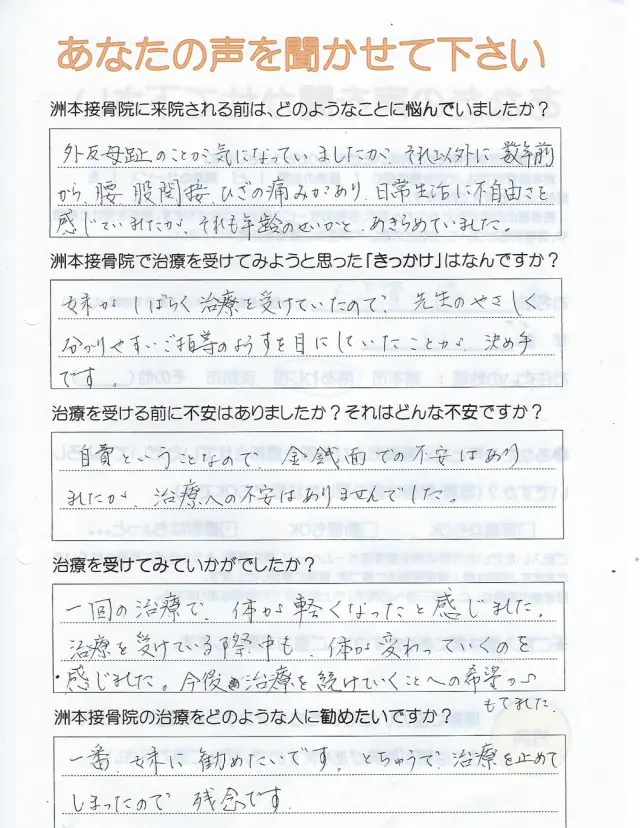 あなたの声を聞かせて下さい
洲本接骨院に来院される前は、どのようなことに悩んでいましたか？
外反母趾のことが気になっていましたが、それ以外に数年前
から、腰、股関接、ひざの痛みがあり、日常生活に不自由さを
感じていましたが、それも年齢のせいかと、あきらめていました。
洲本接骨院で治療を受けてみようと思った「きっかけ」はなんですか？
妹がしばらく治療を受けていたので、先生のやさしく
分かりやすいご指導のようすを目にしていたことが、決め手
です。
治療を受ける前に不安はありましたか？それはどんな不安ですか？
自費ということなので、金銭面での不安はあり
ましたが、治療への不安はありませんでした。
治療を受けてみていかがでしたか？
一回の治療で、体が軽くなったと感じました。
治療を受けている際中も、体が変わっていくのを
感じました。今後治療を続けていくことへの希望が
もてました。
洲本接骨院の治療をどのような人に勧めたいですか？
一番、妹に勧めたいです。とちゅうで、治療を止めて
しまったので残念です。